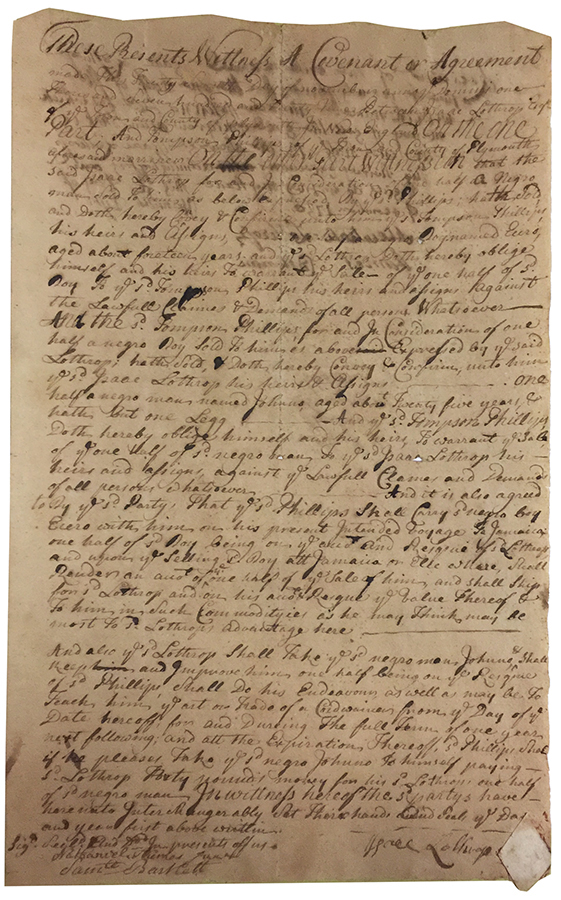 These Presents Wittness A Covenant or Agreement
made the Twenty Day of november anno Domini one
thousand seven hundred and Isaac Lothrop Esqr
of ye Town and County of in New England on the one
Part, And Tompson Phillips of ye County of Plymouth
aforesaid marrener on the other part Wittnesseth that the
said Isaac Lothrop for and in Consideration of one half a Negro
man Sold To him as below by ye sd Phillips; hath Sold
and doth hereby Convey & Confirm unto ye sd Tompson Phillips
his heirs and assigns, one half of a negro Boy named Cuero,
aged about foreteen years and ye sd Lothrop Doth hereby oblige
himself and his heirs To warrant ye Sale of ye one half of sd
Boy To ye sd Tompson Phillips his heirs and assigns against
the Lawfull Claimes & Demands of all persons Whatsoever
And the sd Tompson Phillips for and In Consideration of one
half a negro Boy Sold To him as above Expressed by ye said
Lothrop; hath Sold, & Doth hereby Convey & Confirm, unto him
ye sd Isaac Lothrop his heirs & assigns one
half a negro man named Johnno aged about Twenty five years &
hath but one Legg And ye sd Tompson Phillips
Doth hereby oblige himself and his heirs To warrant ye Sale
of ye one half of sd negro man To ye sd Isaac Lothrop his
heirs and assigns, against ye Lawfull Clames and Demands
of all persons Whatsoever And it is also agreed
by ye sd Party; That ye sd Phillips Shall Cary sd negro boy
Cuero with him on his present Intended Voyage To Jamaica
one half of sd Boy being on ye acct And Resque of sd Lothrop
and upon ye Selling sd Boy att Jamaica or Else where, Shall
Render an acct of one half of ye Sale of him and shall Ship
for sd Lothrop and on his and Resque ye Value Thereof
To him in Such Commodityies as he may Think may be
most To sd Lothrops advantage here
And also ye sd Lothrop Shall Take ye sd negro man Johnno Shall
keep and Improve him one half being on ye Resque
of sd Phillips Shall Do his Endeavour as well as may be To
Teach him ye art or Trade of a Cordwainer from ye Day of ye
Date hereof for and During The full Term of one year
next following; and att the Expiration Thereof sd Phillips Shal
if he pleases Take ye sd negro Johnno To himself paying
sd Lothrop Forty pounds money for his sd Lothrops one half
of sd negro man In wittness hereof the sd partys have
hereunto InterChangerably Set Their hands and Seal ye Day
and year first above writtin
Sign Seald and In presents of us
Nathaniel Thomas Junr
Samll Bartlett
Isaac Lothrop